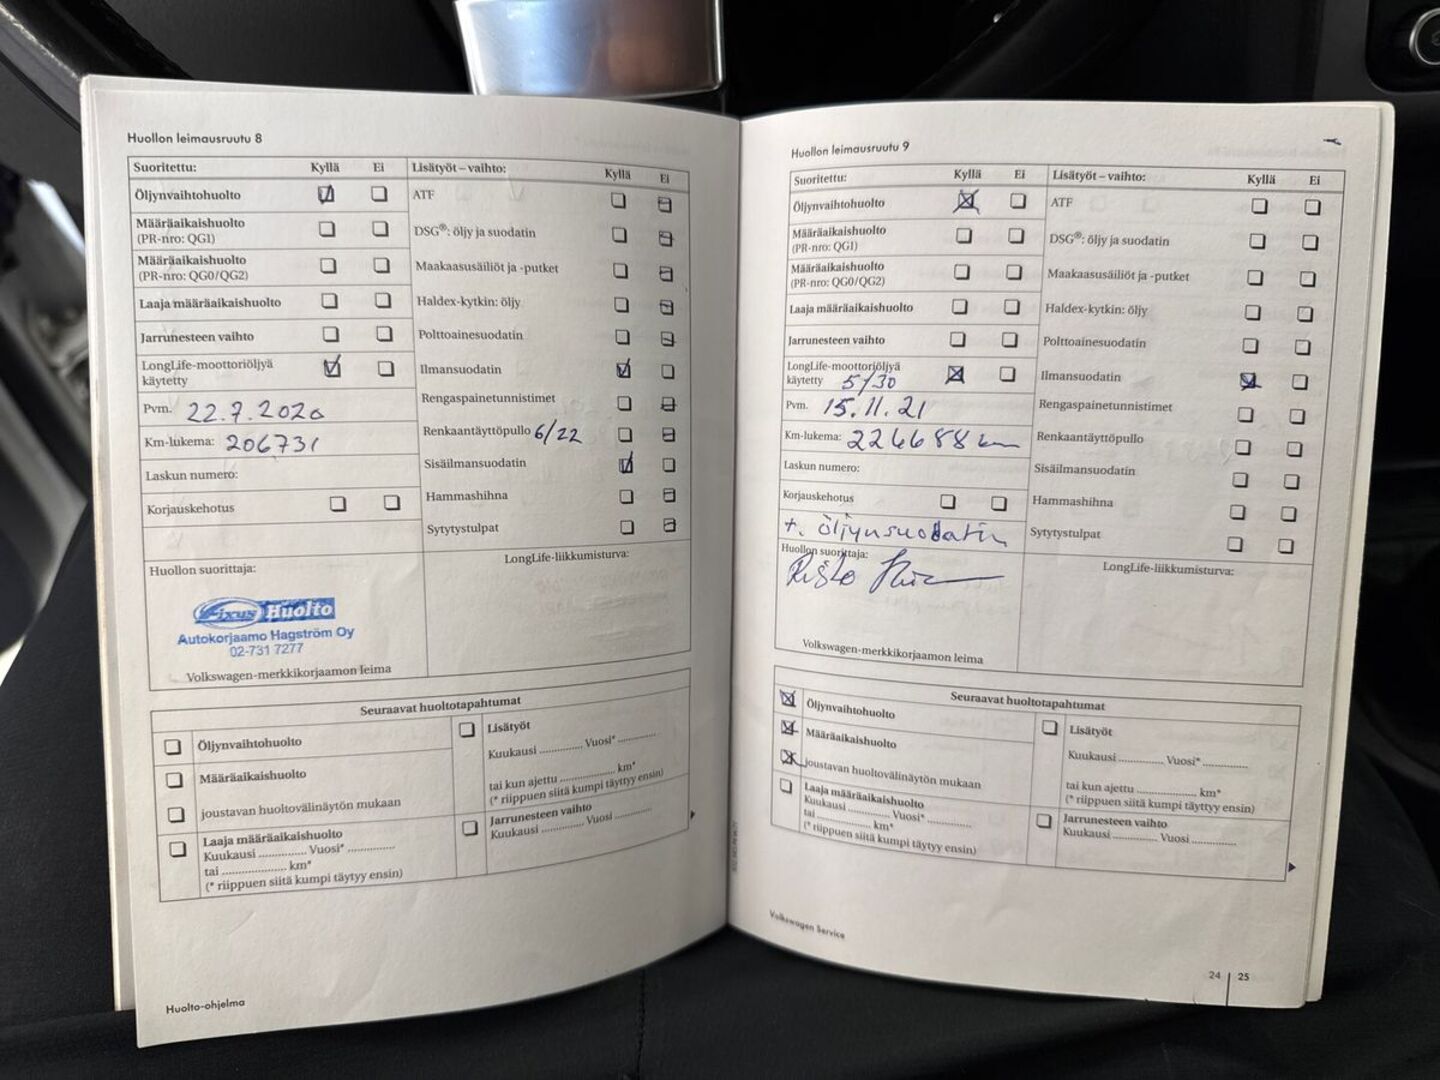 Huollon leimausruutu 8
Suoritettu: Kyllä Ei
Öljynvaihtohuolto
Määräaikaishuolto
(PR-nro: QG1)
Määräaikaishuolto
(PR-nro: QG0/QG2)
Laaja määräaikaishuolto
Jarrunesteen vaihto
LongLife-moottoriöljyä
käytetty
Pvm. 22.7.2020
Km-lukema: 206731
Laskun numero:
Korjauskehotus
Lisätyöt – vaihto: Kyllä Ei
ATF
DSG®: öljy ja suodatin
Maakaasusäiliöt ja -putket
Haldex-kytkin: öljy
Polttoainesuodatin
Ilmansuodatin
Rengaspainetunnistimet
Renkaantäyttöpullo 6/22
Sisäilmansuodatin
Hammashihna
Sytytystulpat
Huollon suorittaja:
Fixus Huolto
Autokorjaamo Hagström Oy
02-731 7277
Volkswagen-merkkikorjaamon leima
LongLife-liikkumisturva:
Seuraavat huoltotapahtumat
Öljynvaihtohuolto
Määräaikaishuolto
joustavan huoltovälinäytön mukaan
Laaja määräaikaishuolto
Kuukausi .............. Vuosi* ..............
tai .................... km*
(* riippuen siitä kumpi täytyy ensin)
Lisätyöt
Kuukausi .............. Vuosi* ..............
tai kun ajettu .................... km*
(* riippuen siitä kumpi täytyy ensin)
Jarrunesteen vaihto
Kuukausi .............. Vuosi ..............
Huolto-ohjelma
Huollon leimausruutu 9
Suoritettu: Kyllä Ei
Öljynvaihtohuolto
Määräaikaishuolto
(PR-nro: QG1)
Määräaikaishuolto
(PR-nro: QG0/QG2)
Laaja määräaikaishuolto
Jarrunesteen vaihto
LongLife-moottoriöljyä
käytetty 5/30
Pvm. 15.11.21
Km-lukema: 224688 km
Laskun numero:
Korjauskehotus
+. öljynsuodatin
Lisätyöt – vaihto: Kyllä Ei
ATF
DSG®: öljy ja suodatin
Maakaasusäiliöt ja -putket
Haldex-kytkin: öljy
Polttoainesuodatin
Ilmansuodatin
Rengaspainetunnistimet
Renkaantäyttöpullo
Sisäilmansuodatin
Hammashihna
Sytytystulpat
Huollon suorittaja:
Volkswagen-merkkikorjaamon leima
LongLife-liikkumisturva:
Seuraavat huoltotapahtumat
Öljynvaihtohuolto
Määräaikaishuolto
joustavan huoltovälinäytön mukaan
Laaja määräaikaishuolto
Kuukausi .............. Vuosi* ..............
tai .................... km*
(* riippuen siitä kumpi täytyy ensin)
Lisätyöt
Kuukausi .............. Vuosi* ..............
tai kun ajettu .................... km*
(* riippuen siitä kumpi täytyy ensin)
Jarrunesteen vaihto
Kuukausi .............. Vuosi ..............
Volkswagen Service
24 | 25